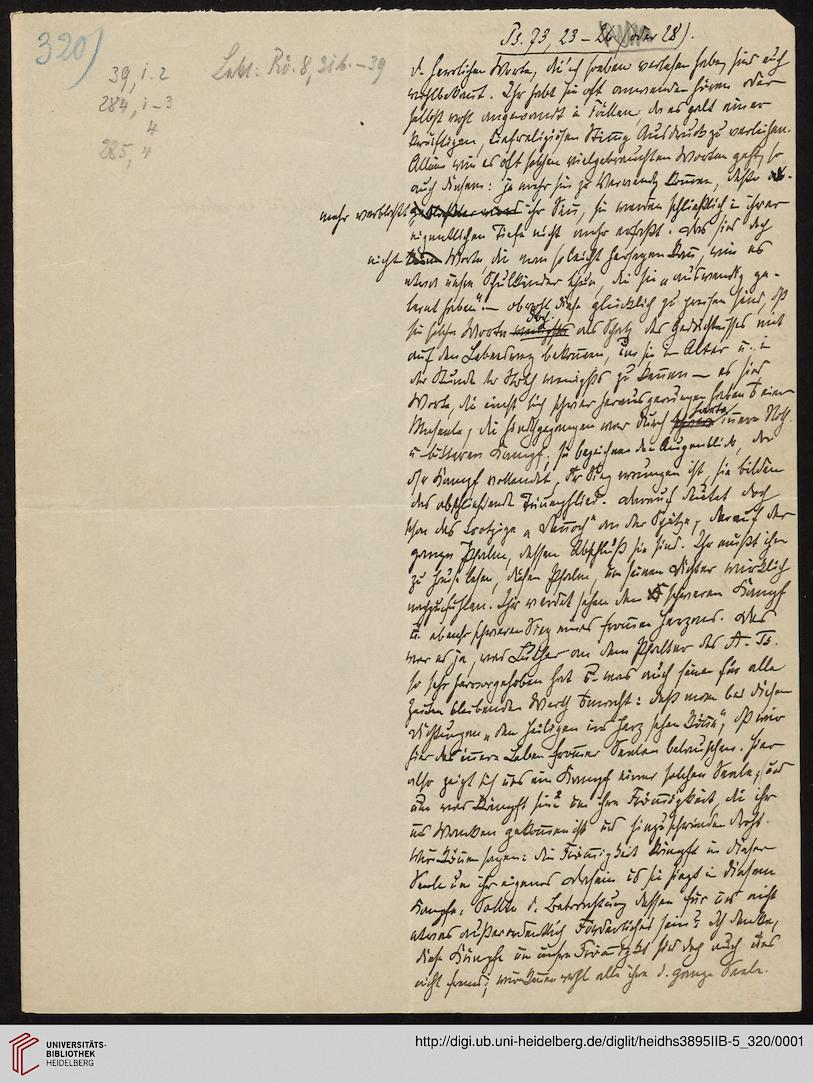 320)
39, 1. 2
284, 1-3
4
285, 4
Lekt: Rö. 8, 31b. - 39
Ps. 73, 23 - 26 (oder 28).
d. herrlichen Worte, die ich soeben verlesen habe, sind euch
wohlbekannt. Ihr habt sie oft anwenden hören oder
selbst wohl angewandt in Fällen, da es galt einer
kräftigen, tiefreligiösen Stimmg Ausdruck zu verleihen.
Allein wie es oft solchen vielgebrauchten Worten geht, so
auch diesen: je mehr sie zu Verwendg kommen, desto
mehr verblaßt ihr Sinn, sie werden schließlich in ihrer
eigentlichen Tiefe nicht mehr erfaßt. Das sind doch
nicht Worte, die man so leicht hersagen kann, wie es
etwa unsre Schulkinder thun, die sie „auswendig ge-
lernt haben". – obwohl diese glücklich zu preisen sind, dß
sie solche Worte doch als Schatz des Gedächtnisses mit
auf den Lebensweg bekommen, um sie im Alter u. in
der Stunde der Noth wenigstens zu kennen – es sind
Worte, die einst sich schwer herausgerungen haben einer
Menschenseele, die hindurchgegangen war durch harte innere Noth
u. bitteren Kampf; sie bezeichnen den Augenblick, da
der Kampf vollendet, der Sieg errungen ist, sie bilden
das abschließende Triumphlied. Darauf deutet doch
schon das trotzige „Dennoch" an der Spitze, darauf der
ganze Psalm, dessen Abschluß sie sind. Ihr müßt ihn
zu Hause lesen, diesen Psalm, um seinem Dichter wirklich
nachzufühlen. Ihr werdet sehen den schweren Kampf
u. ebenso schweren Sieg eines frommen Herzens. Das
war es ja, was Luther an dem Psalter des A. Ts.
so sehr hervorgehoben hat u. was auch seinen für alle
Zeiten bleibenden Werth ausmacht: daß man bei diesen
Dichtungen „den Heiligen ins Herz sehen könne", dß wir
hier das innere Leben frommer Seelen belauschen. Hier
also zeigt sich uns ein Kampf einer solchen Seele; und
um was kämpft sie? Um ihre Frömmigkeit, die ihr
ins Wanken gekommen ist und hinzuschwinden droht.
Wir können sagen: die Frömmigkeit kämpft in dieser
Seele um ihr eigenes Dasein und sie siegt in diesem
Kampfe. Sollte d. Betrachtung dessen für uns nicht
etwas außerordentlich Förderliches sein? Ich denke,
diese Kämpfe um unsre Frömmigkeit sind doch auch uns
nicht fremd; wir kennen wohl alle ihn d. ganze Seele.
UNIVERSITÄTS-
BIBLIOTHEK
HEIDELBERG
http://digi.ub.uni-heidelberg.de/diglit/heidhs3895IIB-5_320/0001